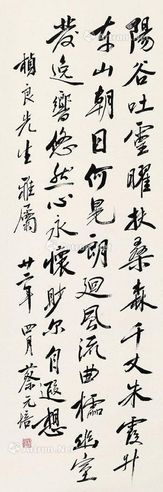 陽谷吐靈曜扶桑森千丈朱霞升
東山朝日何晃朗迴風流曲櫺幽室
發逸響悠然心永懷眇爾自遐想
楨良先生雅屬
廿二年四月蔡元培